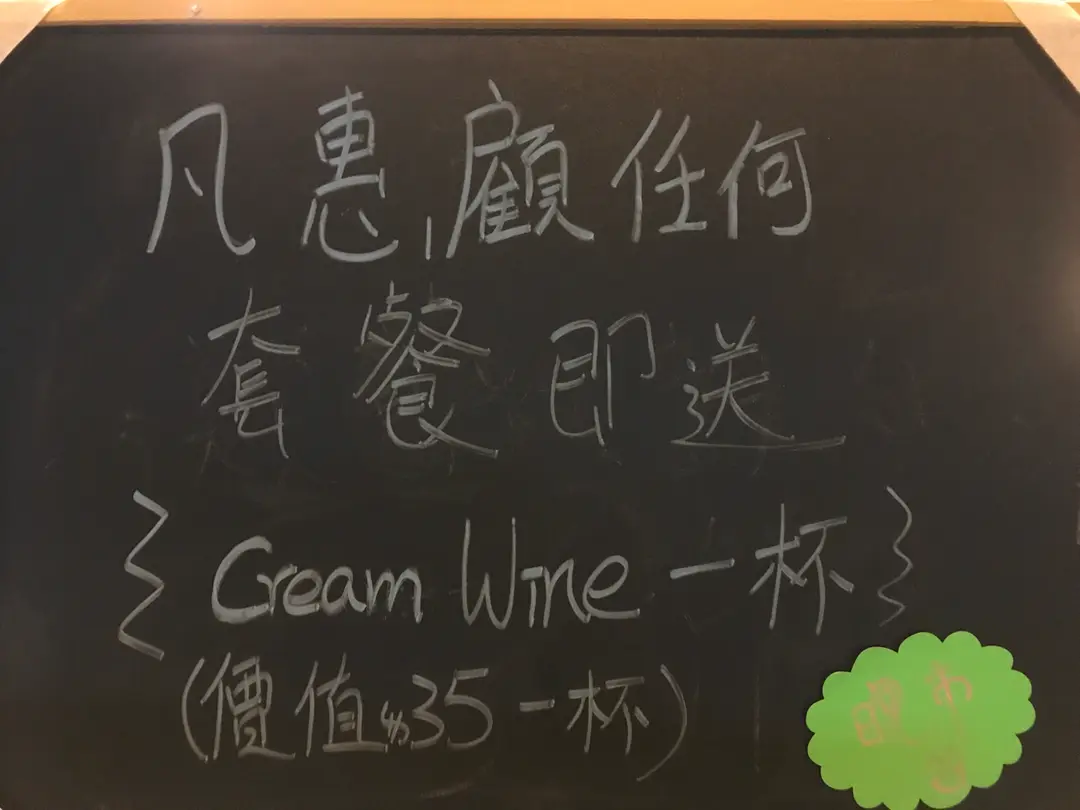 凡惠顧任何
套餐即送
{Cream Wine 一杯}
(價值$35一杯)